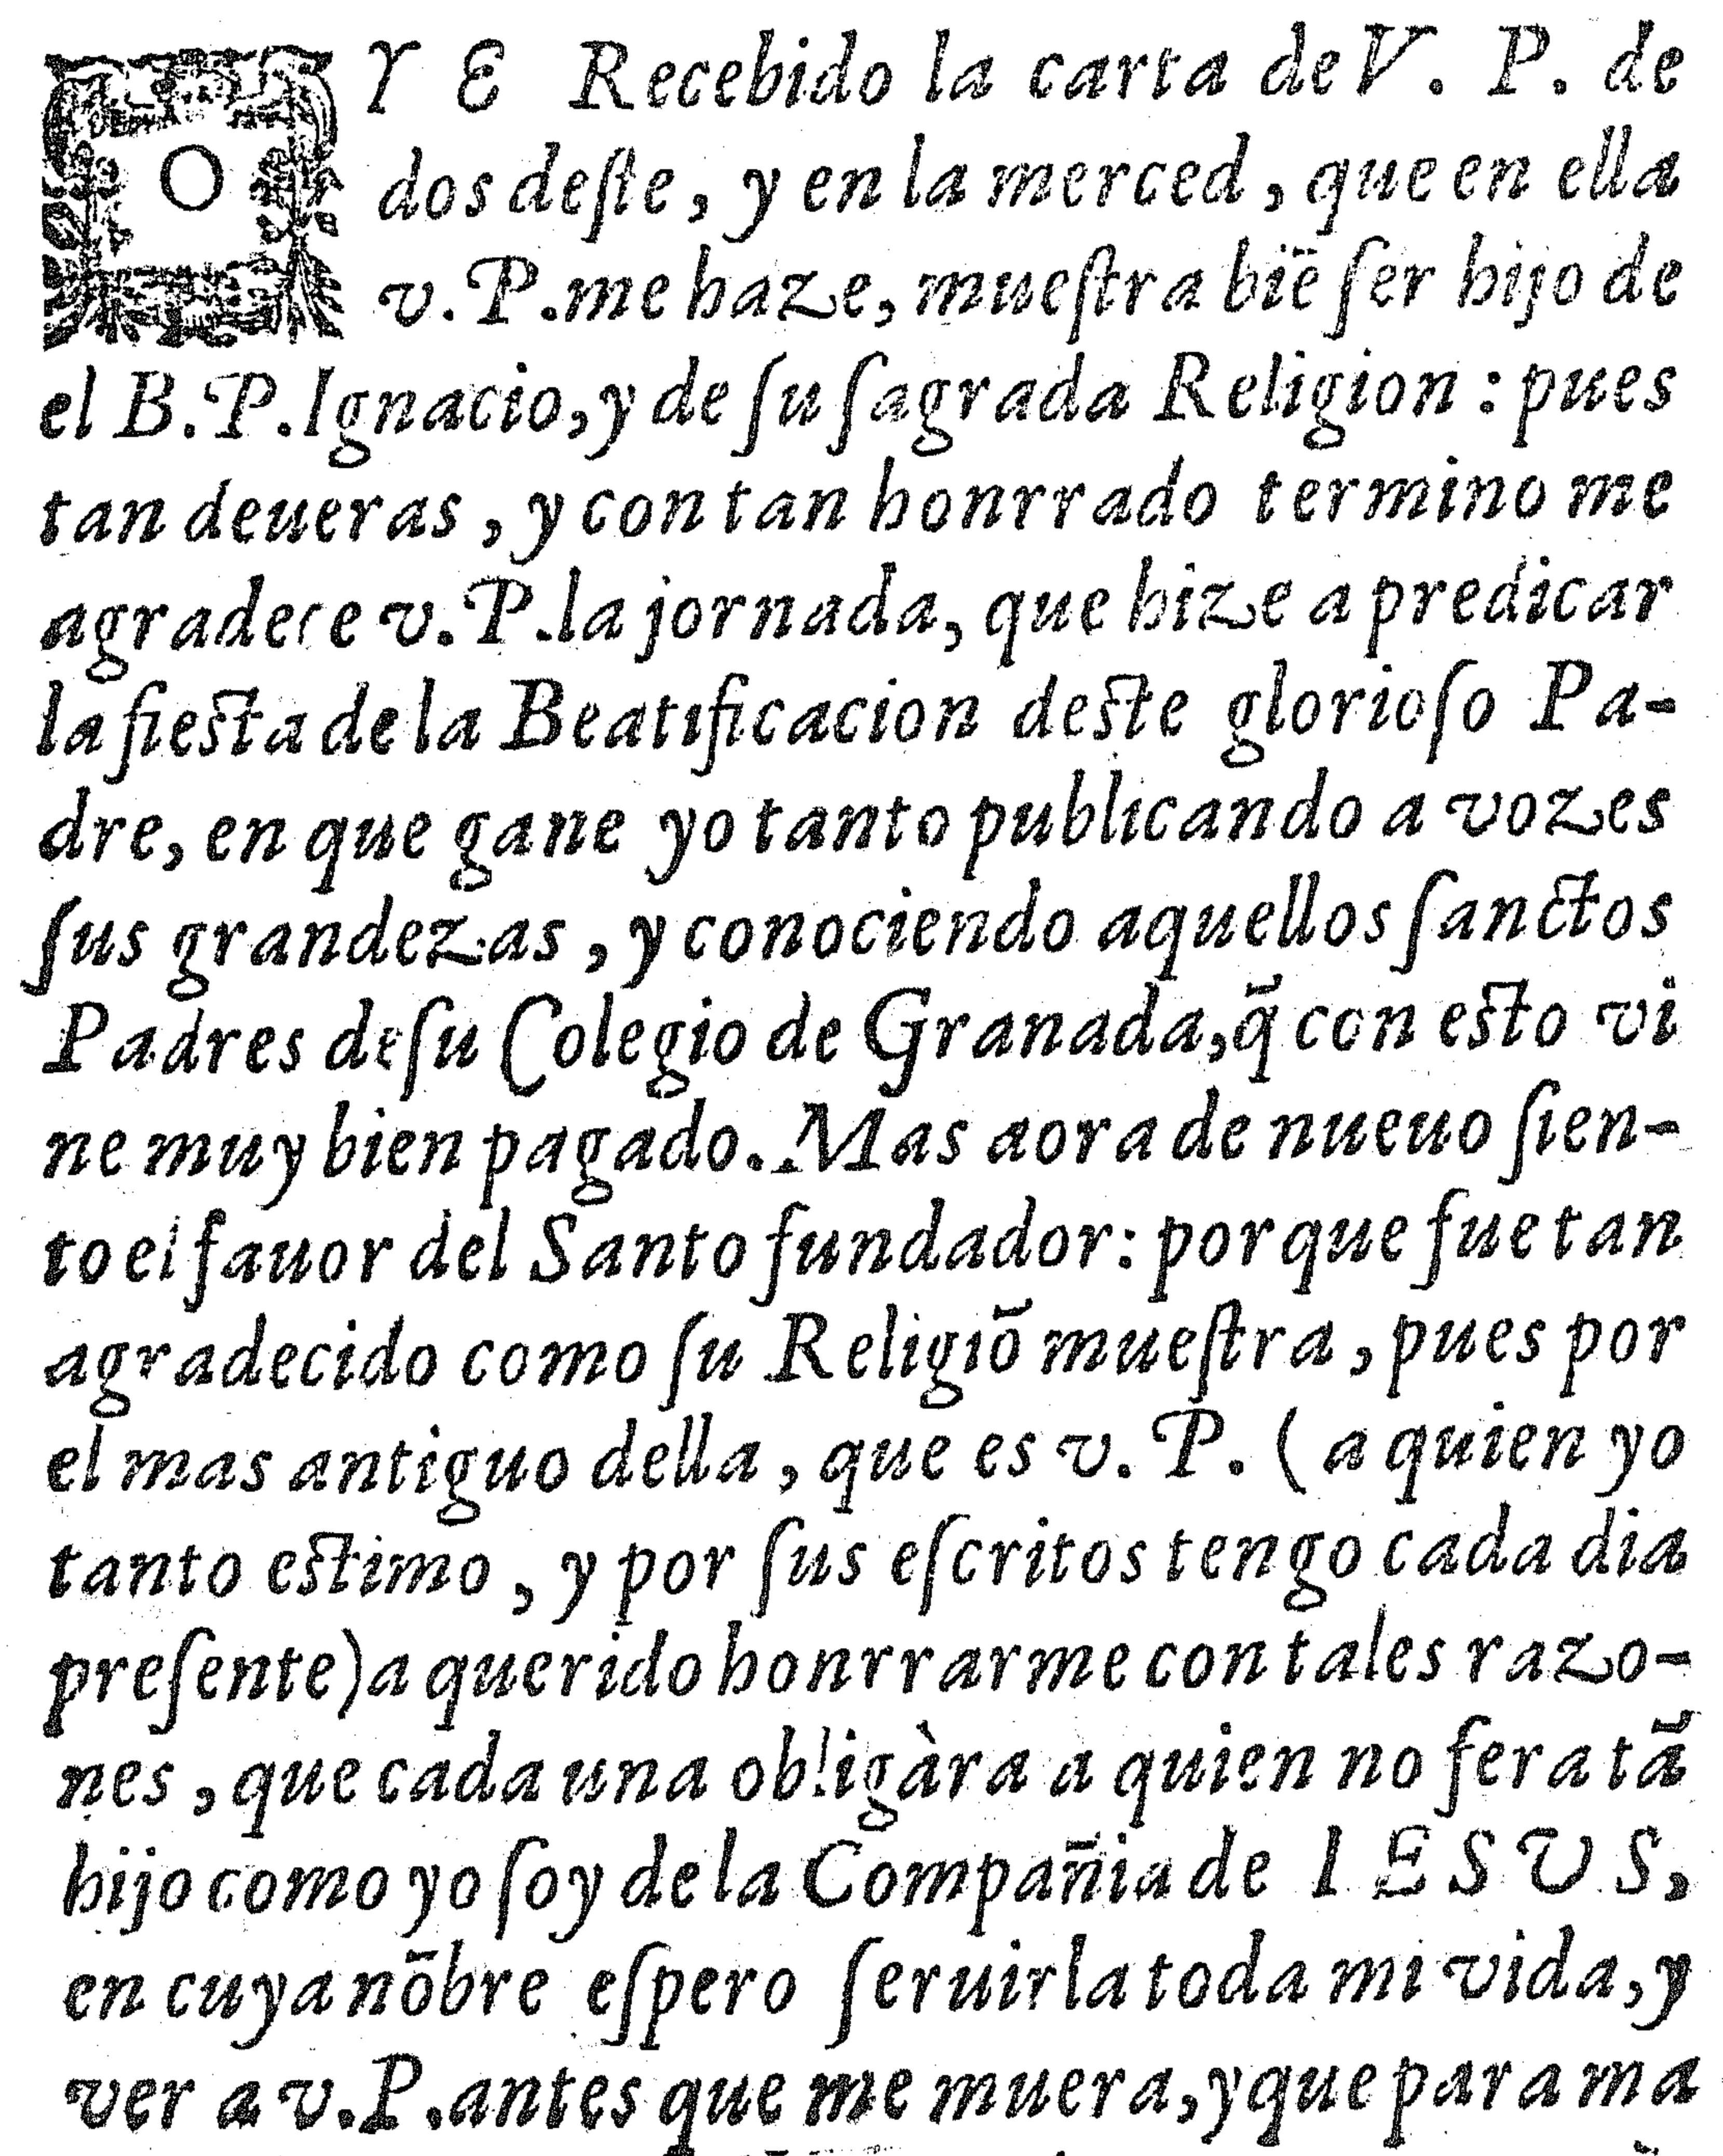 OY E Recebido la carta de V. P. de
dos deſte, y en la merced, que en ella
v. P. me haze, mueſtra biē ſer hijo de
el B. P. Ignacio, y de ſu ſagrada Religion: pues
tan deueras, y con tan honrrado termino me
agradece v. P. la jornada, que hize a predicar
la fiesta de la Beatificacion deste glorioſo Pa-
dre, en que gane yo tanto publicando a vozes
ſus grandezas, y conociendo aquellos ſanctos
Padres de ſu Colegio de Granada, q̄ con esto vi
ne muy bien pagado. Mas aora de nueuo ſien-
to el fauor del Santo fundador: porque fue tan
agradecido como ſu Religiō mueſtra, pues por
el mas antiguo della, que es v. P. (a quien yo
tanto estimo, y por ſus eſcritos tengo cada dia
preſente) a querido honrrarme con tales razo-
nes, que cada una obligàra a quien no fera tā
hijo como yo ſoy de la Compañia de IESVS,
en cuya nōbre eſpero ſeruirla toda mi vida, y
ver a v. P. antes que me muera, y que para ma